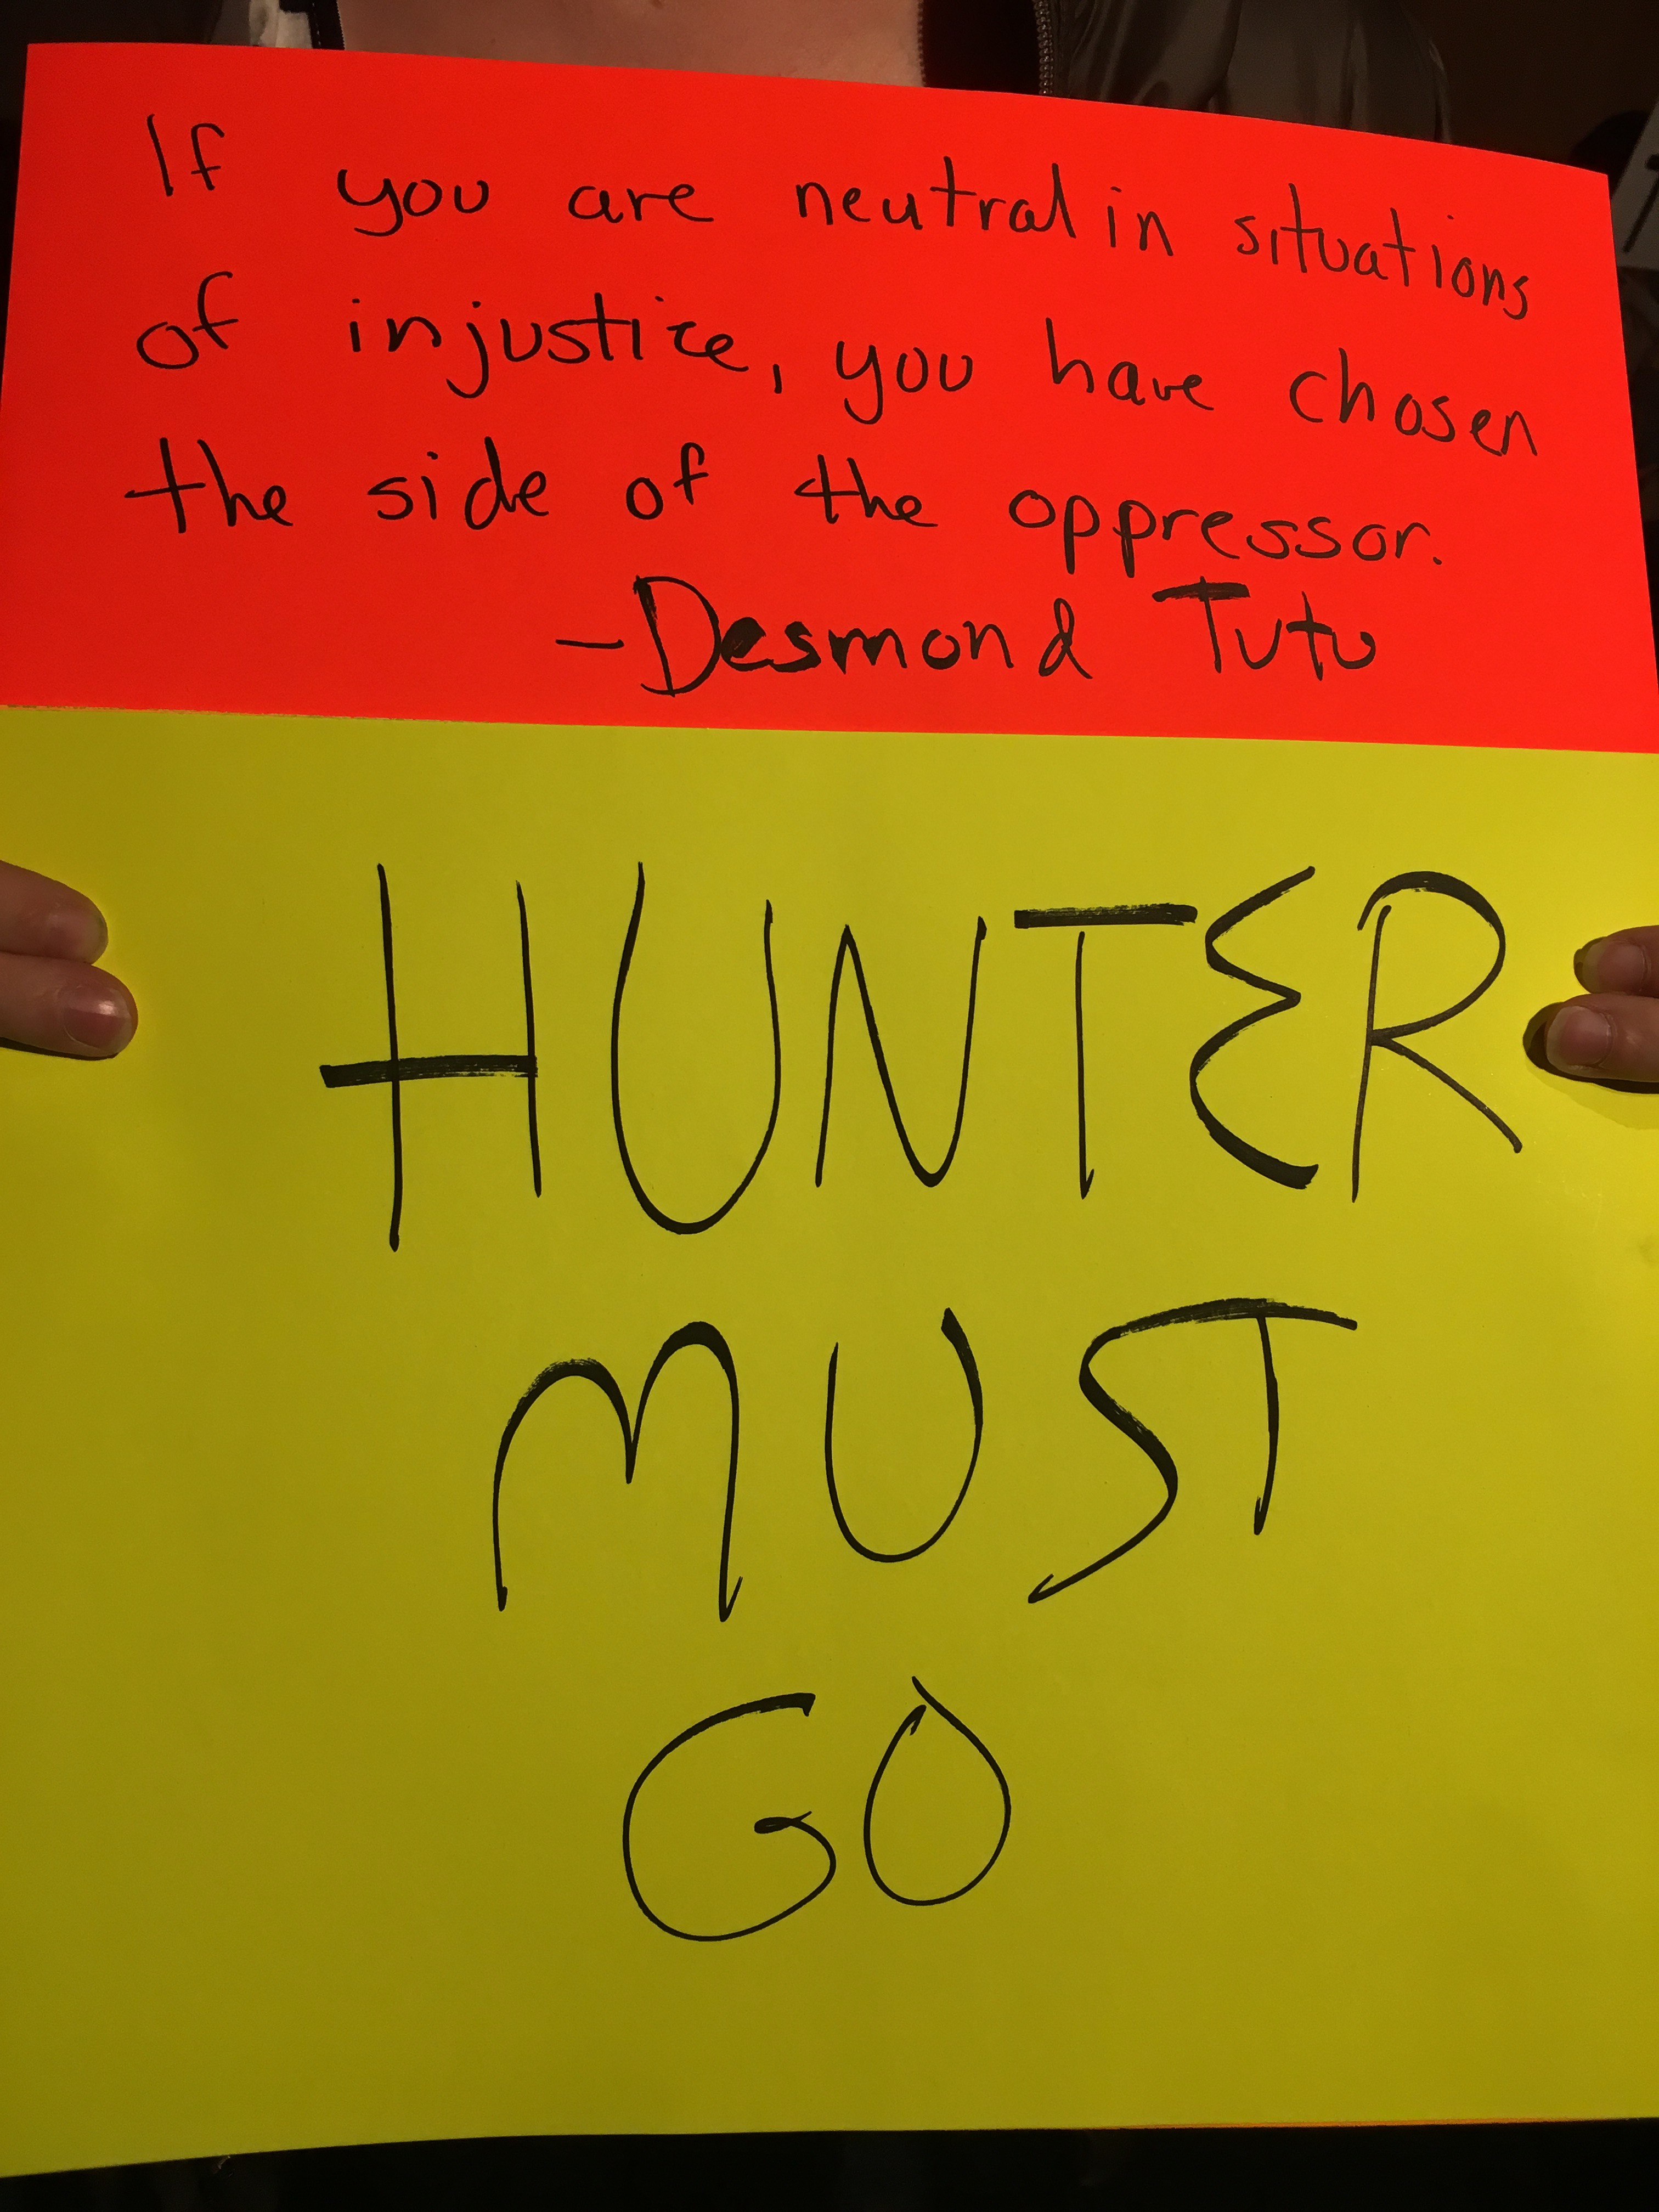 If you are neutral in situations
of injustice, you have chosen
the side of the oppressor.
-Desmond Tutu
HUNTER
MUST
GO